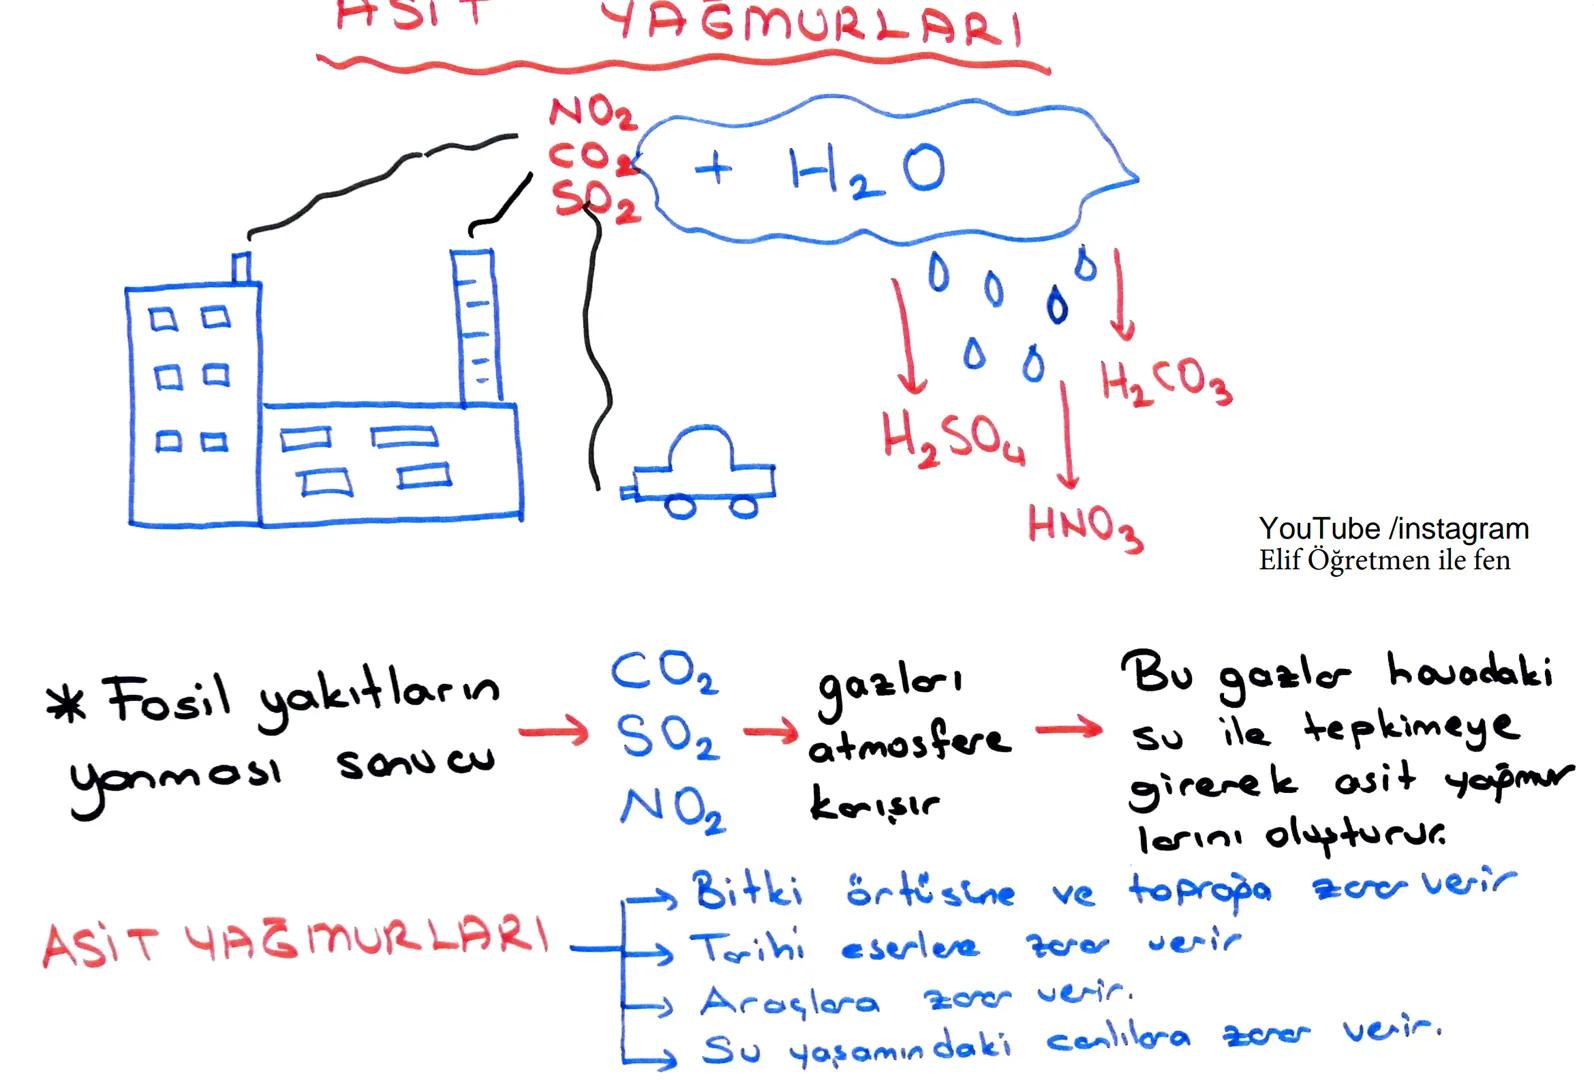 ASİT YAĞMURLARI
NO2
CO2
SO2
+ H2O
H2CO3
H2SO4
HNO3
YouTube /instagram
Elif Öğretmen ile fen
* Fosil yakıtların
yanması sonucu
CO2
SO2
NO2
gazları
atmosfere
karışır
Bu gazlar havadaki
su ile tepkimeye
girerek asit yağmur
larını oluşturur.
ASİT YAĞMURLARI
Bitki örtüsüne ve toprağa zarar verir
Tarihi eserlere zarar verir
Araçlara zarar verir.
Su yaşamındaki canlılara zarar verir.